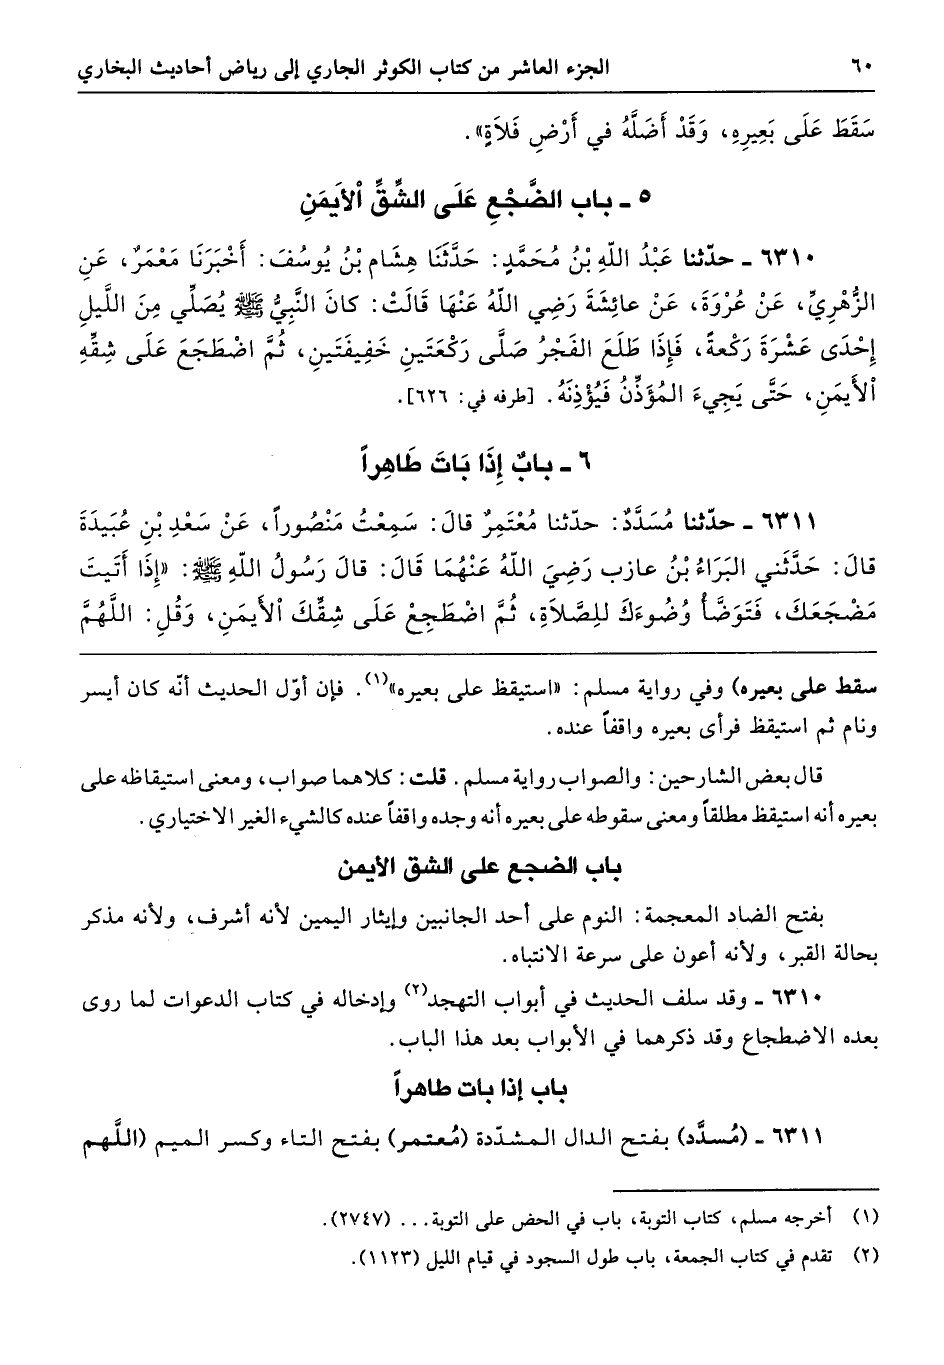 ٦٠ الجزء العاشر من كتاب الكوثر الجاري إلى رياض أحاديث البخاري
سَقَطَ عَلَى بَعِيرِهِ، وَقَدْ أَضَلَّهُ في أَرْضِ فَلاَةٍ».
٥ ـ باب الضَّجْعِ عَلَى الشِّقِّ الأَيمَنِ
٦٣١٠ ـ حدّثنا عَبْدُ اللهِ بْنُ مُحَمَّدٍ: حَدَّثَنَا هِشَام بْنُ يُوسُفَ: أَخْبَرَنَا مَعْمَرٌ، عَنِ
الزُّهْرِيِّ، عَنْ عُرْوَةَ، عَنْ عائِشَةَ رَضِي اللهُ عَنْهَا قَالَتْ: كانَ النَّبِيُّ ﷺ يُصَلِّي مِنَ اللَّيلِ
إِحْدَى عَشْرَةَ رَكْعةً، فَإِذَا طَلَعَ الفَجْرُ صَلَّى رَكْعَتَينِ خَفِيفَتَينِ، ثُمَّ اضْطَجَعَ عَلَى شِقِّهِ
الأَيمَنِ، حَتَّى يَجِيءَ المُؤَذِّنُ فَيُؤْذِنَهُ. [طرفه في: ٦٢٦].
٦ ـ بابٌ إِذَا بَاتَ طَاهِراً
٦٣١١ ـ حدّثنا مُسَدَّدٌ: حدّثنا مُعْتَمِرٌ قالَ: سَمِعْتُ مَنْصُوراً، عَنْ سَعْدِ بْنِ عُبَيدَةَ
قالَ: حَدَّثَني البَرَاءُ بْنُ عازِب رَضِيَ اللهُ عَنْهُمَا قَالَ: قالَ رَسُولُ اللهِ ﷺ: «إِذَا أَتَيتَ
مَضْجَعَكَ، فَتَوَضَّأْ وُضُوءَكَ لِلصَّلاَةِ، ثُمَّ اضْطَجِعْ عَلَى شِقِّكَ الأَيمَنِ، وَقُلِ: اللَّهُمَّ
سقط على بعيره) وفي رواية مسلم: «استيقظ على بعيره»(١). فإن أوّل الحديث أنّه كان أيسر
ونام ثم استيقظ فرأى بعيره واقفاً عنده.
قال بعض الشارحين: والصواب رواية مسلم. قلت: كلاهما صواب، ومعنى استيقاظه على
بعيره أنه استيقظ مطلقاً ومعنى سقوطه على بعيره أنه وجده واقفاً عنده كالشيء الغير الاختياري.
باب الضجع على الشق الأيمن
بفتح الضاد المعجمة: النوم على أحد الجانبين وإيثار اليمين لأنه أشرف، ولأنه مذكر
بحالة القبر، ولأنه أعون على سرعة الانتباه.
٦٣١٠ ـ وقد سلف الحديث في أبواب التهجد(٢) وإدخاله في كتاب الدعوات لما روى
بعده الاضطجاع وقد ذكرهما في الأبواب بعد هذا الباب.
باب إذا بات طاهراً
٦٣١١ ـ (مُسدَّد) بفتح الدال المشدّدة (مُعتمر) بفتح التاء وكسر الميم (اللَّهم
(١) أخرجه مسلم، كتاب التوبة، باب في الحض على التوبة... (٢٧٤٧).
(٢) تقدم في كتاب الجمعة، باب طول السجود في قيام الليل (١١٢٣).